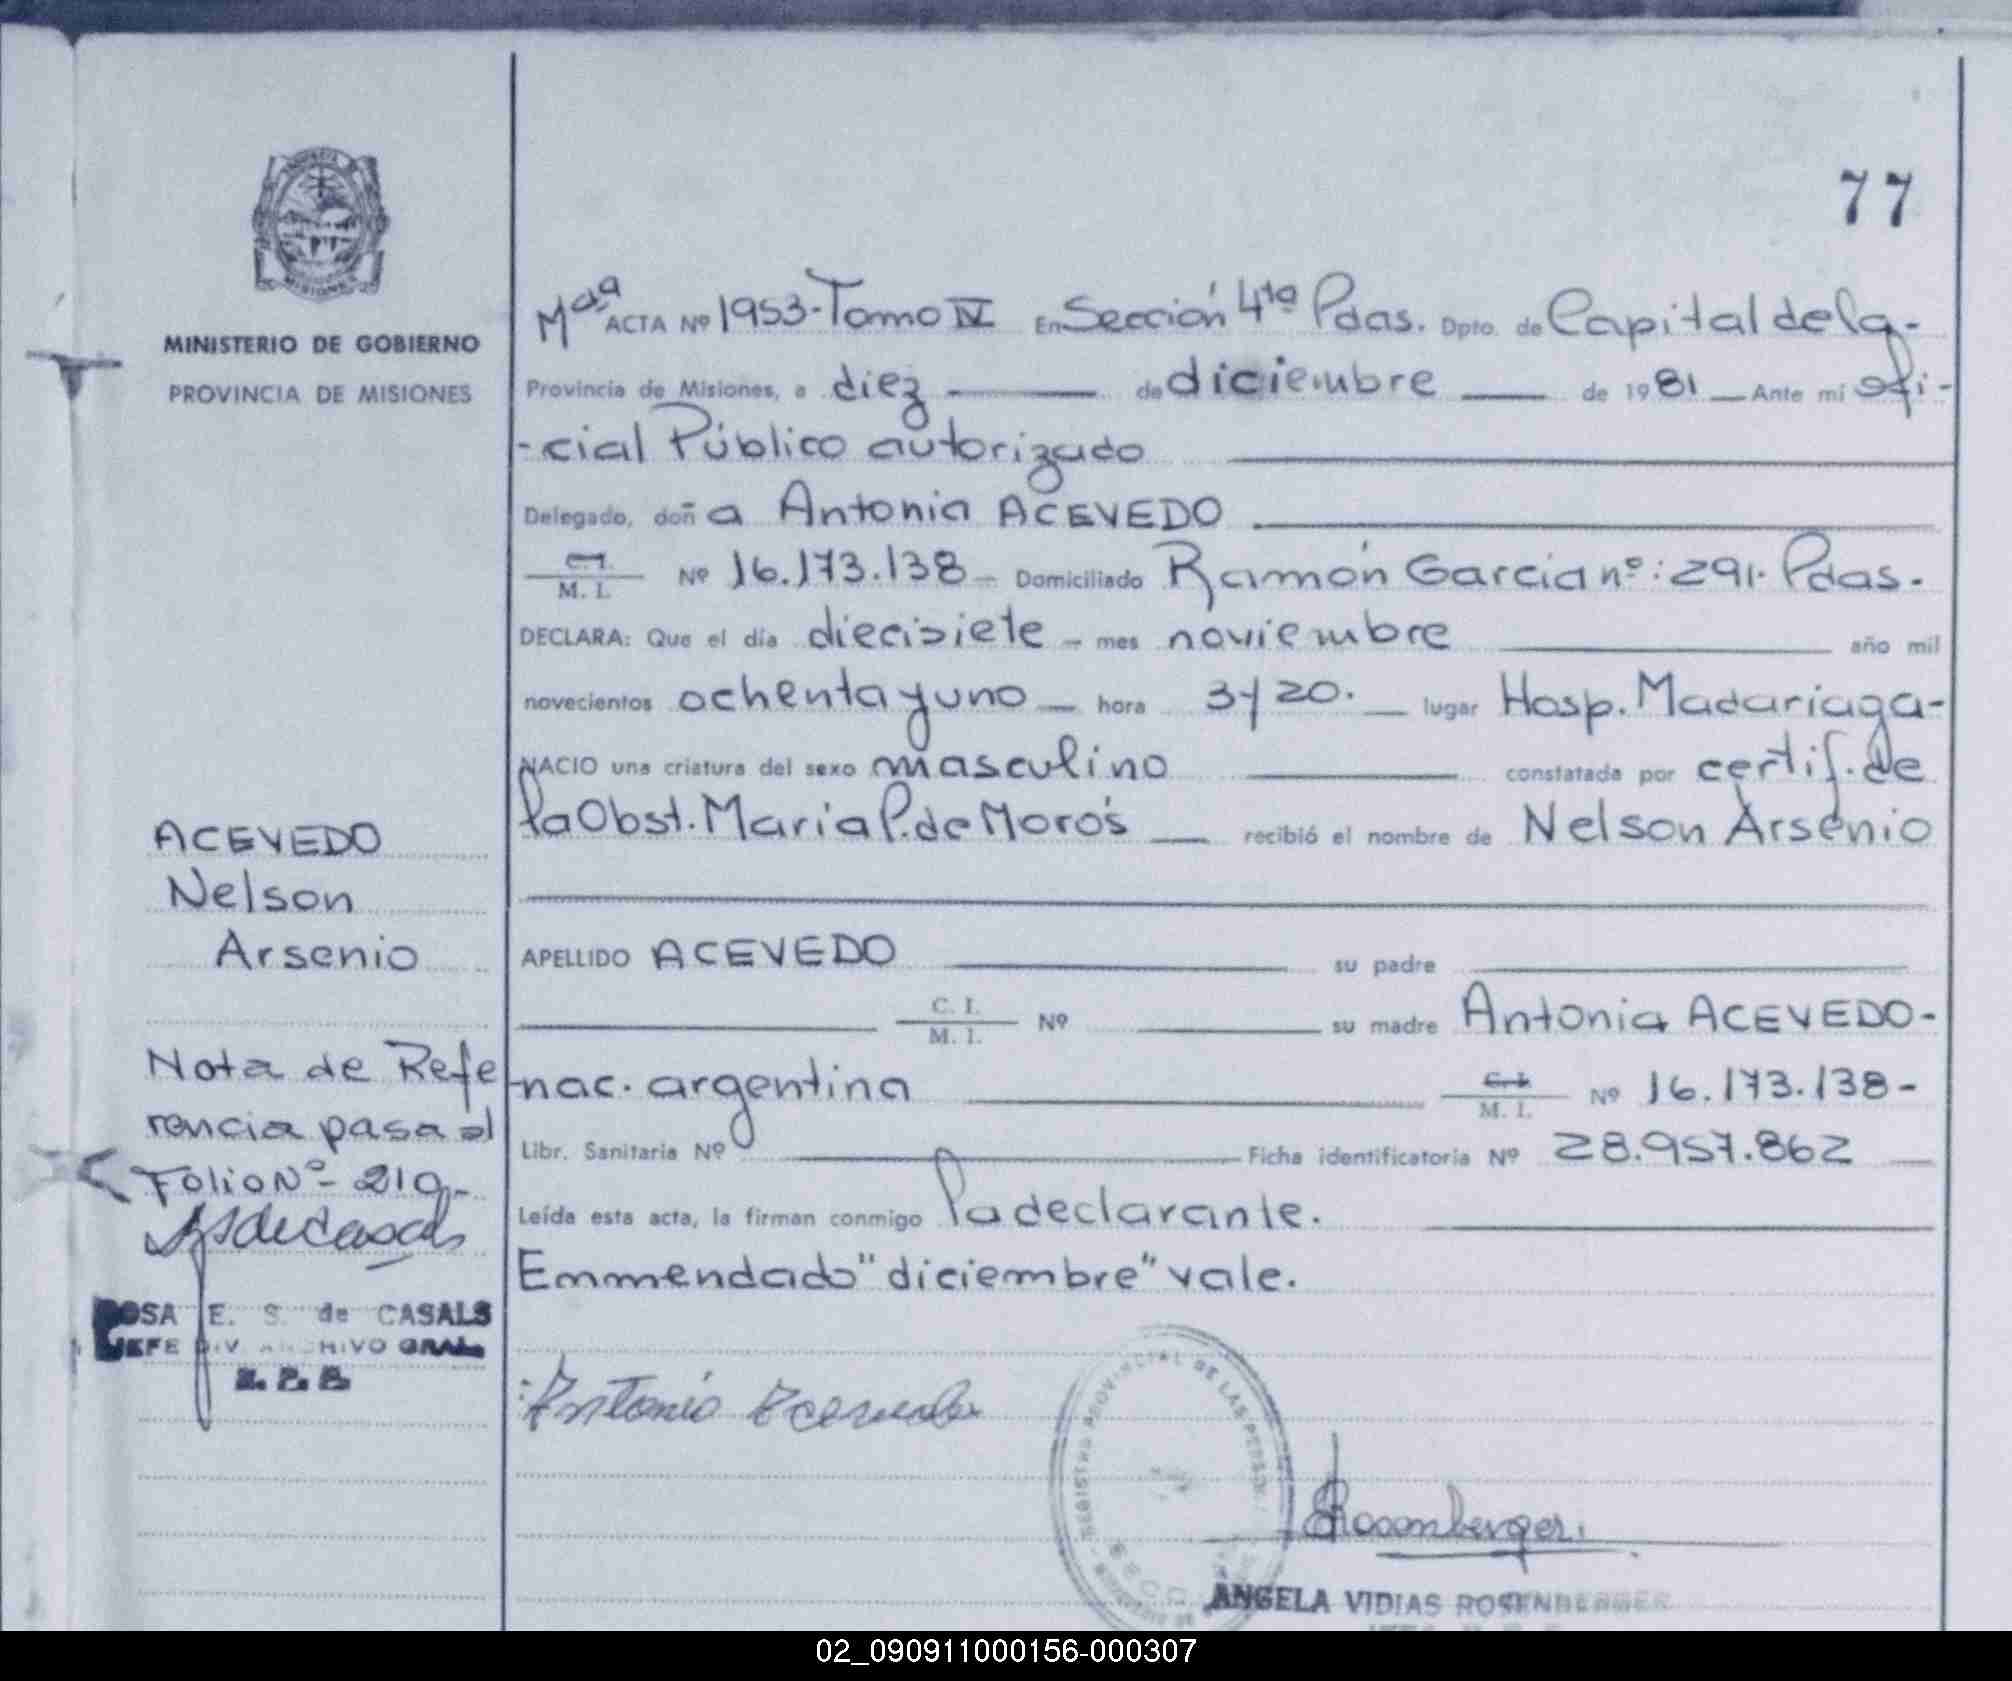 77
MINISTERIO DE GOBIERNO
PROVINCIA DE MISIONES
ACTA Nº 1953-Tomo IV En Sección 4ta Pdas. Dpto. de Capital de la-
Provincia de Misiones, a diez de diciembre de 1981 Ante mi ofi-
-cial Público autorizado
Delegado, doña Antonia ACEVEDO
C.I. M. I. Nº 16.173.138 Domiciliado Ramón Garcia nº: 291. Pdas.
DECLARA: Que el día diecisiete - mes noviembre año mil
novecientos ochenta y uno hora 3y20. lugar Hosp. Madariaga-
NACIO una criatura del sexo masculino constatada por certif. de
la Obst. Maria P. de Morós recibió el nombre de Nelson Arsenio
APELLIDO ACEVEDO su padre
C. I. M. I. Nº su madre Antonia ACEVEDO-
nac. argentina C. I. M. I. Nº 16.173.138-
Libr. Sanitaria Nº Ficha identificatoria Nº 28.957.862
Leída esta acta, la firman conmigo la declarante.
Emmendado "diciembre" vale.
Antonia Acevedo
Rosenberger
REGISTRO PROVINCIAL DE LAS
ANGELA VIDIAS ROSENBERGER
ACEVEDO
Nelson
Arsenio
Nota de Refe
rencia pasa al
Folio Nº- 210-
ROSA E. S. de CASALS
JEFE DIV ARCHIVO GRAL.
02_090911000156-000307